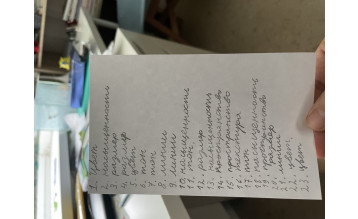 1. цвет
2. насыщенность
3. размер
4. размер
5. цвет
6. тон
7. тон
8. линии
9. линии
10. насыщенность
11. тон
12. размер
13. насыщенность
14. пространство
15. пространство
16. текстура
17. тон
18. насыщенность
19. пространство
20. размер
21. линии
22. цвет
23. цвет